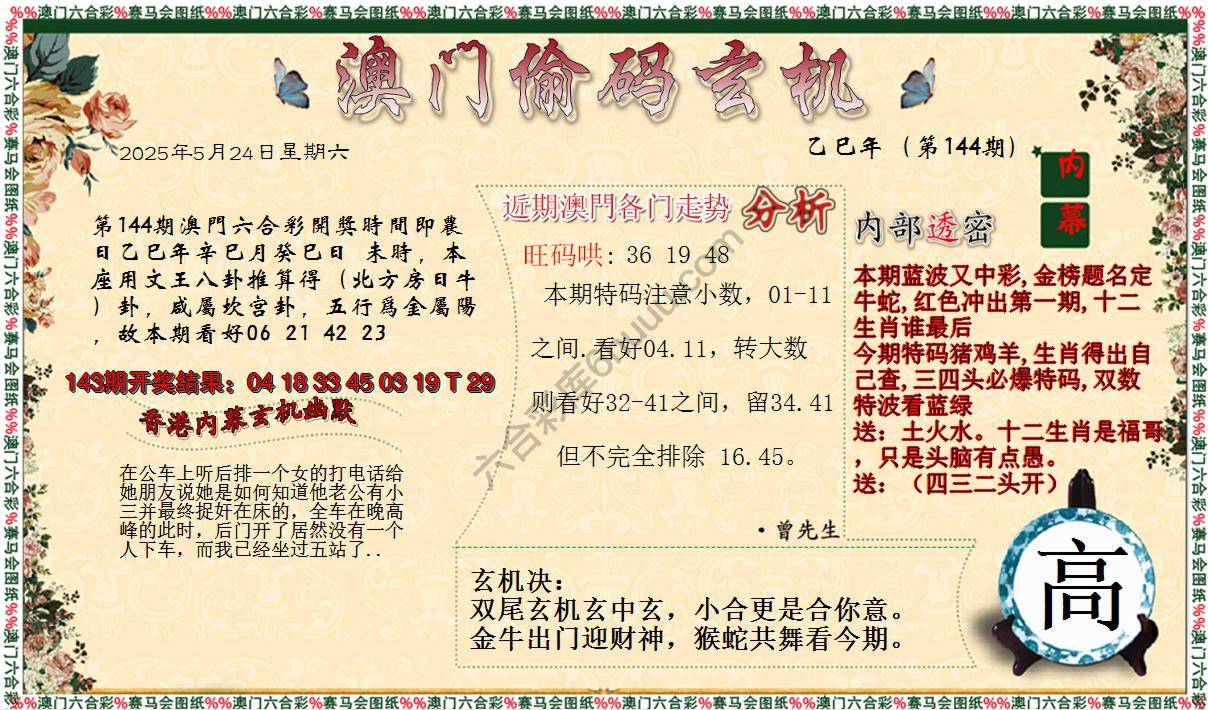 %%澳门六合彩%赛马会图纸%%澳门六合彩%赛马会图纸%%澳门六合彩%赛马会图纸%%澳门六合彩%赛马会图纸%%澳门六合彩%赛马会图纸%%澳门六合彩%赛马会图纸%%
澳门偷码玄机
2025年5月24日星期六
乙巳年（第144期）
内
幕
第144期澳門六合彩開獎時間即農
日乙巳年辛巳月癸巳日 未時，本
座用文王八卦推算得（北方房日牛
）卦，咸屬坎宫卦，五行爲金屬陽
，故本期看好06 21 42 23
143期开奖结果：04 18 33 45 03 19 T 29
香港内幕玄机幽默
在公车上听后排一个女的打电话给
她朋友说她是如何知道他老公有小
三并最终捉奸在床的，全车在晚高
峰的此时，后门开了居然没有一个
人下车，而我已经坐过五站了..
近期澳門各门走势 分析
旺码哄: 36 19 48
本期特码注意小数，01-11
之间.看好04.11，转大数
则看好32-41之间，留34.41
但不完全排除 16.45。
·曾先生
六合彩库6huuu.com
内部透密
本期蓝波又中彩,金榜题名定
牛蛇,红色冲出第一期,十二
生肖谁最后
今期特码猪鸡羊,生肖得出自
己查,三四头必爆特码,双数
特波看蓝绿
送：土火水。十二生肖是福哥
，只是头脑有点愚。
送：（四三二头开）
玄机决：
双尾玄机玄中玄，小合更是合你意。
金牛出门迎财神，猴蛇共舞看今期。
高
%%澳门六合彩%赛马会图纸%%澳门六合彩%赛马会图纸%%澳门六合彩%赛马会图纸%%澳门六合彩%赛马会图纸%%澳门六合彩%赛马会图纸%%澳门六合彩%赛马会图纸%%